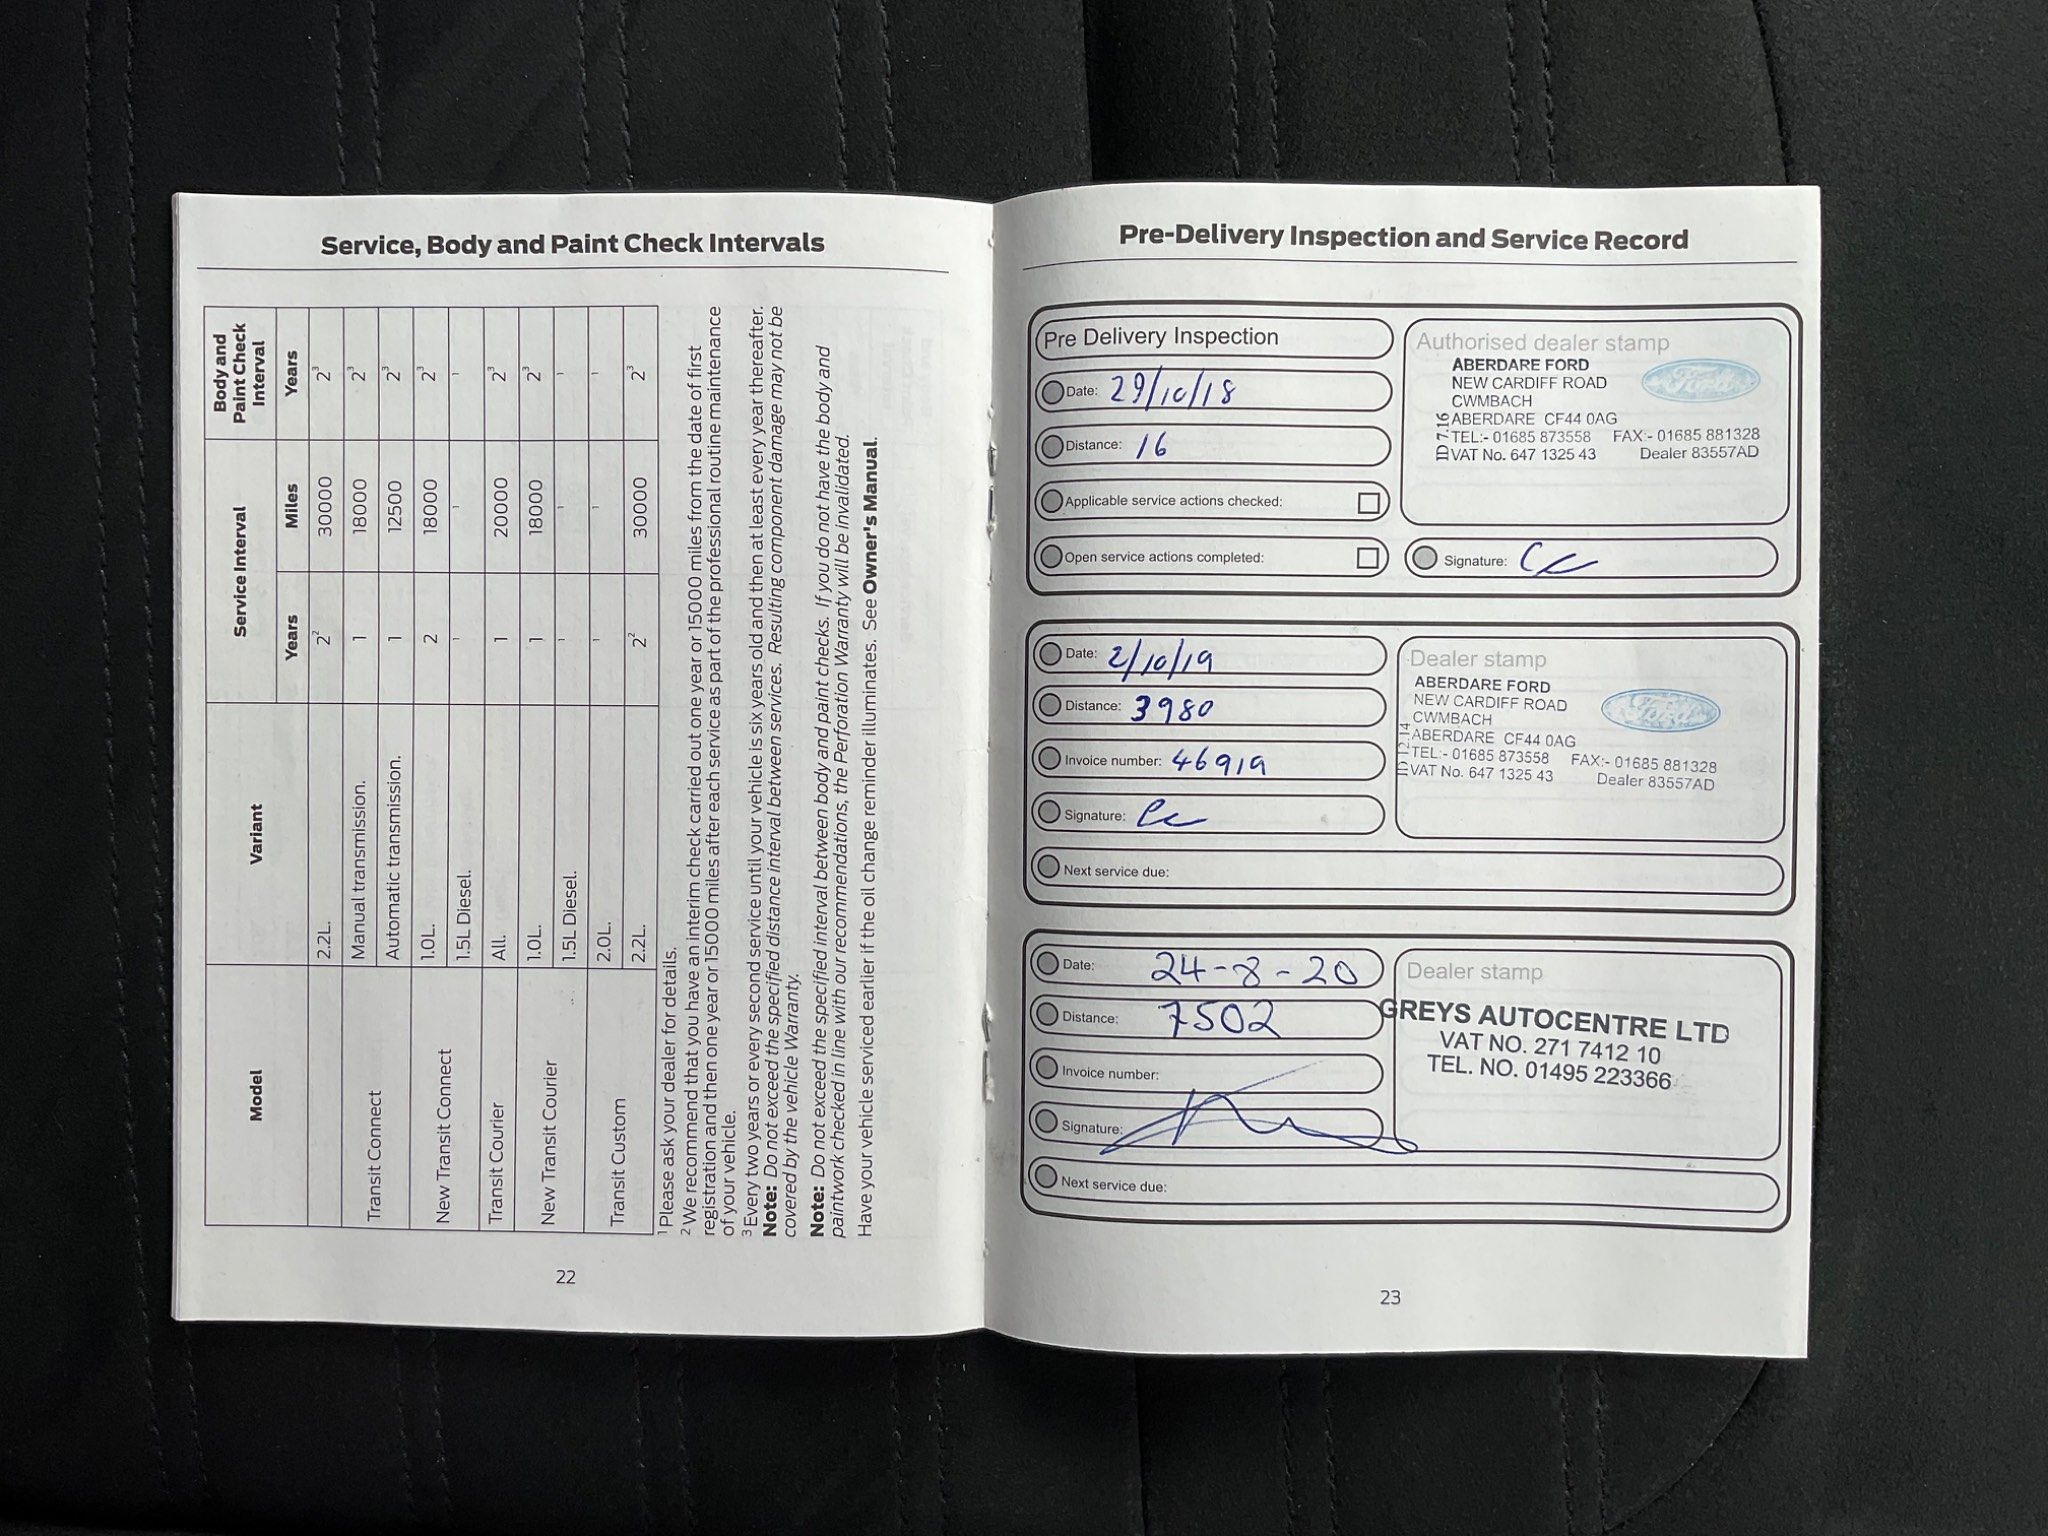 Service, Body and Paint Check Intervals
Model Variant Service Interval Body and Paint Check Interval
Years Miles Years
2.2L. 2² 30000 2³
Transit Connect Manual transmission. 1 18000 2³
Automatic transmission. 1 12500 2³
New Transit Connect 1.0L. 2 18000 2³
1.5L Diesel. ¹ ¹ ¹
Transit Courier All. 1 20000 2³
New Transit Courier 1.0L. 1 18000 2³
1.5L Diesel. ¹ ¹ ¹
Transit Custom 2.0L. ¹ ¹ ¹
2.2L. 2² 30000 2³
¹ Please ask your dealer for details.
² We recommend that you have an interim check carried out one year or 15000 miles from the date of first
registration and then one year or 15000 miles after each service as part of the professional routine maintenance
of your vehicle.
³ Every two years or every second service until your vehicle is six years old and then at least every year thereafter.
Note: Do not exceed the specified distance interval between services. Resulting component damage may not be
covered by the vehicle Warranty.
Note: Do not exceed the specified interval between body and paint checks. If you do not have the body and
paintwork checked in line with our recommendations, the Perforation Warranty will be invalidated.
Have your vehicle serviced earlier if the oil change reminder illuminates. See Owner's Manual.
22
Pre-Delivery Inspection and Service Record
Pre Delivery Inspection
Date: 29/10/18
Distance: 16
Applicable service actions checked:
Open service actions completed:
Authorised dealer stamp
ABERDARE FORD
Ford
NEW CARDIFF ROAD
CWMBACH
ABERDARE CF44 0AG
TEL:- 01685 873558 FAX:- 01685 881328
VAT No. 647 1325 43 Dealer 83557AD
ID 7.16
Signature: Cc
Date: 2/10/19
Distance: 3980
Invoice number: 46919
Signature: Cc
Next service due:
Dealer stamp
ABERDARE FORD
Ford
NEW CARDIFF ROAD
CWMBACH
ABERDARE CF44 0AG
TEL:- 01685 873558 FAX:- 01685 881328
VAT No. 647 1325 43 Dealer 83557AD
ID 12.14
Date: 24-8-20
Distance: 7502
Invoice number:
Signature:
Next service due:
Dealer stamp
GREYS AUTOCENTRE LTD
VAT NO. 271 7412 10
TEL. NO. 01495 223366
23